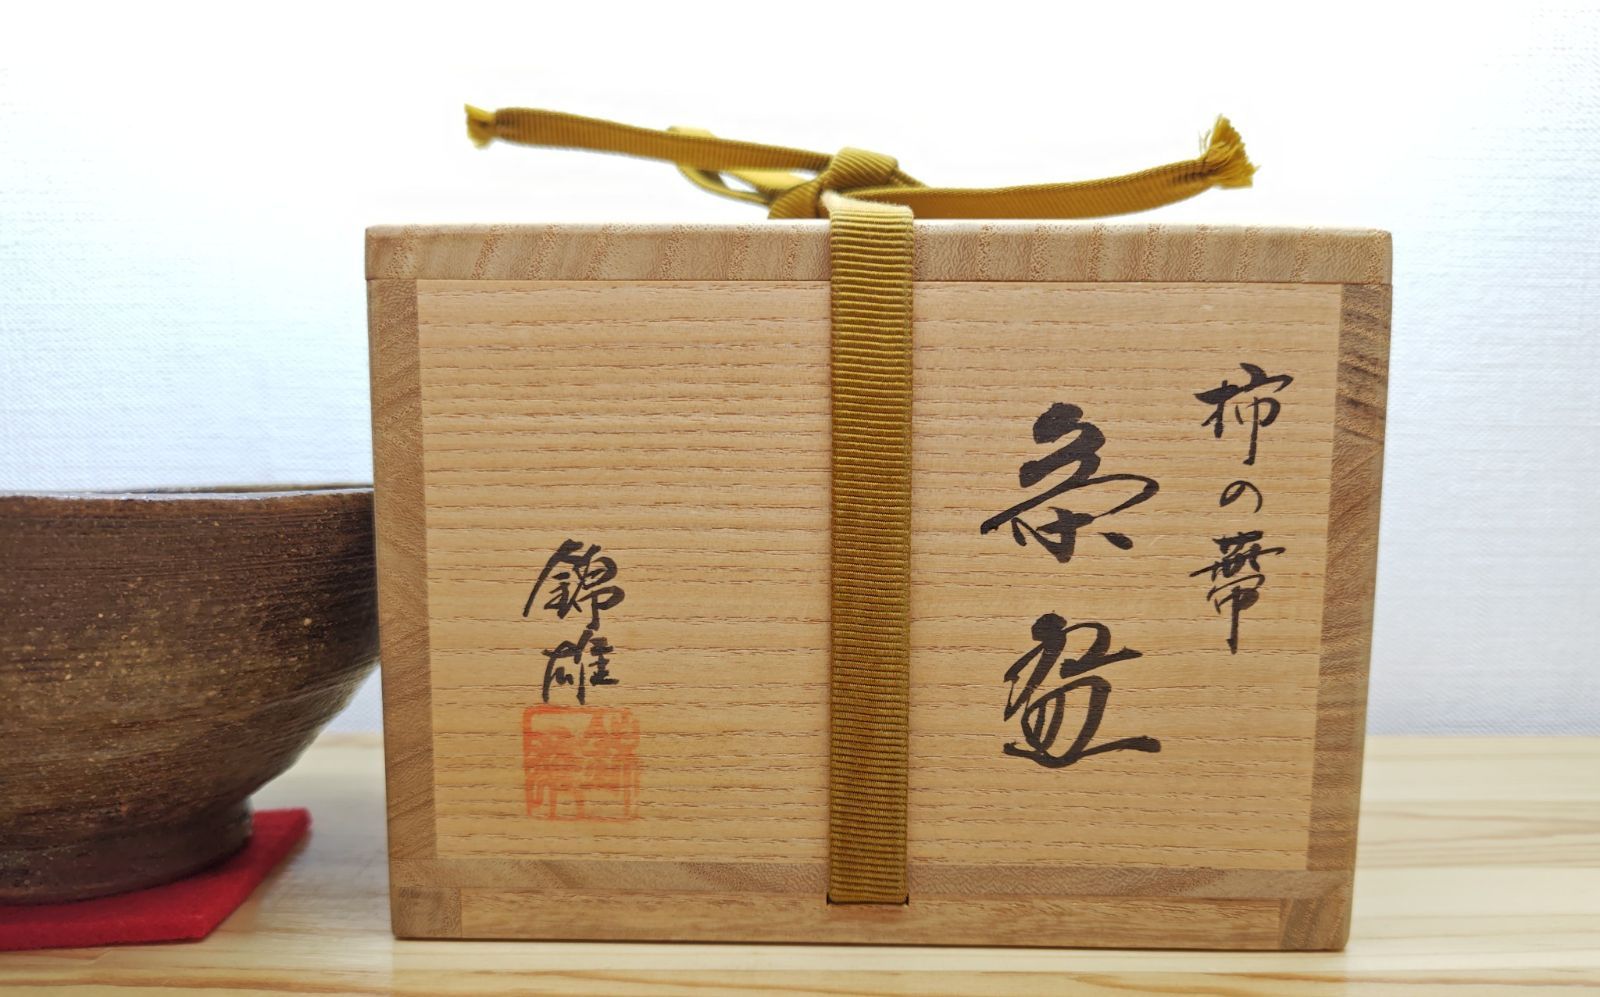 柿の蔕
茶盌
錦雄